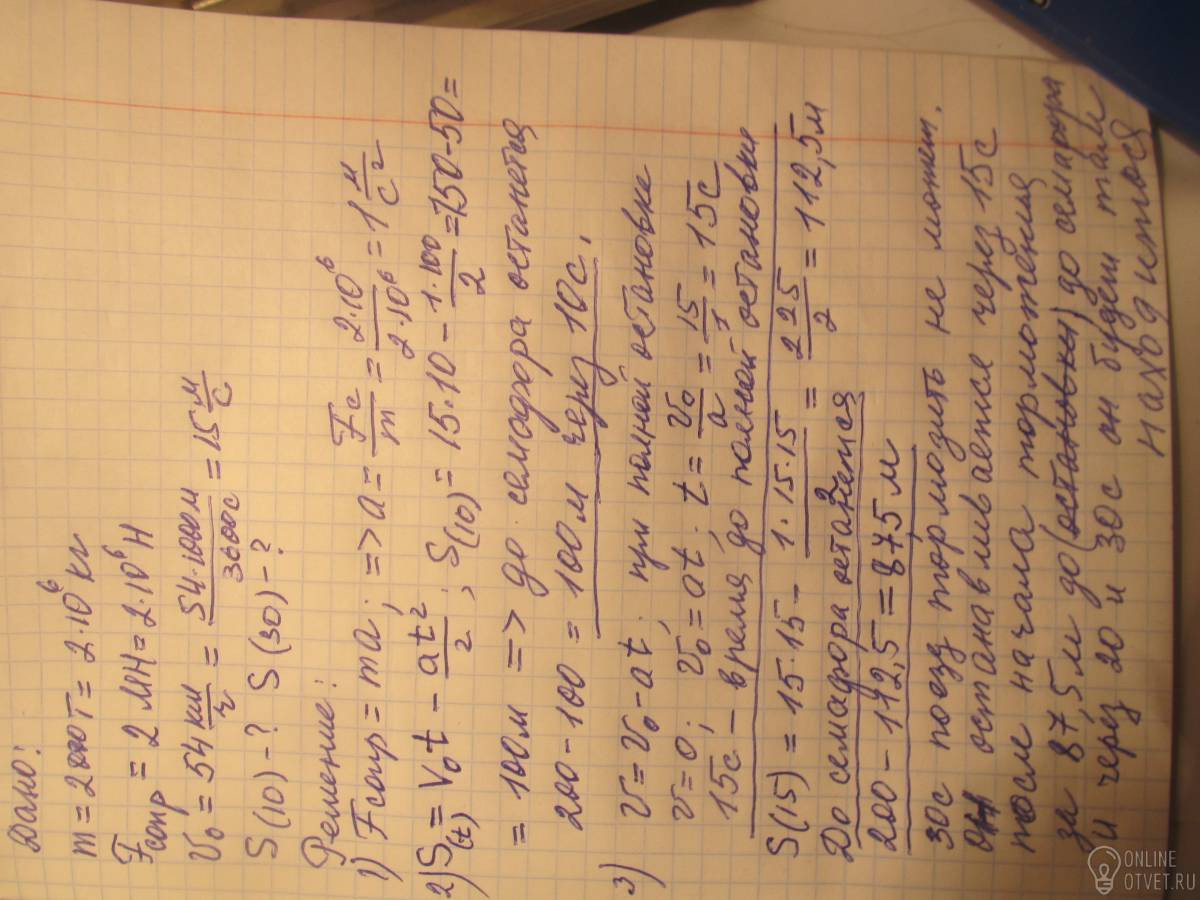 Дано:
m = 2000т = 2·10⁶ кг
Fсопр = 2 МН = 2·10⁶ Н
V₀ = 54 км/ч = 54·1000м/3600с = 15 м/с
S(10) - ? S(30) - ?
Решение:
1) Fсопр = ma; => a = Fс/m = 2·10⁶/2·10⁶ = 1 м/с²
2) S(t) = V₀t - at²/2; S(10) = 15·10 - 1·100/2 = 150-50 =
= 100м => до семафора останется
200-100 = 100м через 10с.
3) V = V₀-at; при полной остановке
V=0; V₀ = at; t = V₀/a = 15/1 = 15с
15с - время до полной остановки
S(15) = 15·15 - 1·15·15/2 = 225/2 = 112,5м
До семафора останется
200 - 112,5 = 87,5 м
30с поезд тормозить не может.
Он останавливается через 15с
после начала торможения
за 87,5м до (остановки) до семафора
и через 20 и 30с он будет там
находится
ONLINE
OTVET.RU